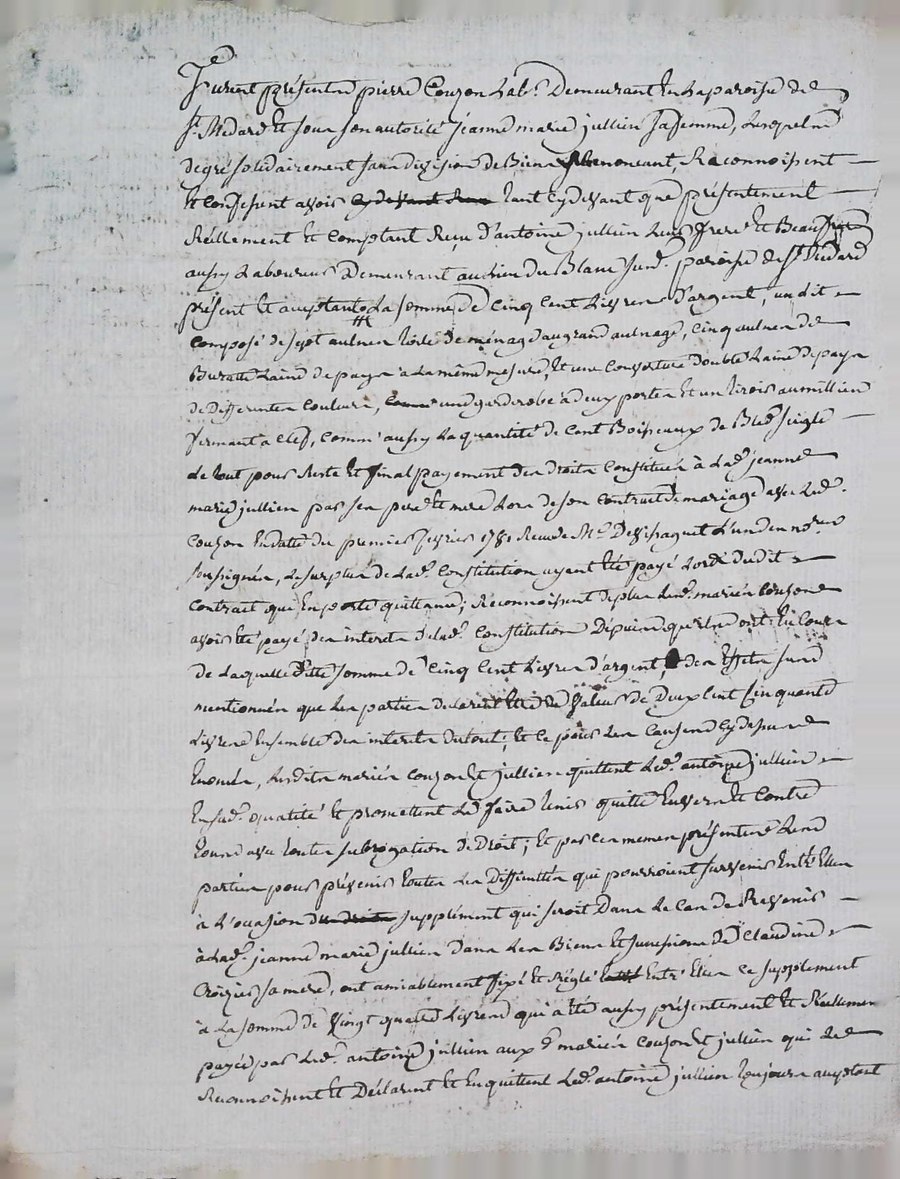 Furent présents pierre Couzon Lab.r Demeurant En La paroisse de
St. Medard et sous son autorité Jeanne marie jullien Sa femme, Lesquels
de gré solidairement sans division de Biens y Renonceant, Reconnoissent
et confessent avoir cy devant Reçu tant cy devant que présentement
Réellement et comptant Reçu d'antoine jullien Leur frere et Beaufrere
aussy Laboureur Demeurant au lieu du Blanc Susd. paroisse de St. Medard
présent et acceptant La somme de Cinq Cent Livres d'argent, un lit
composé de sept aulnes toile de ménage au grand aulnage, Cinq aulnes de
Buratte Laine de pays a La même mesure, et une Couverture double Laine de pays
de differentes Couleurs, une garderobe à deux portes et un tirois au millieu
fermant a clef, comm'aussy La quantité de Cent Boisseaux de Bled seigle
Le tout pour Reste et final payement des droits Constitués à Lad. jeanne
marie jullien par ses pere et mere Lors de son Contract de mariage avec Led.
Couzon En datte du premier fevrier 1781 Reçu de Me. L'un des no.res
soussignés, Le surplus de Lad. Constitution ayent été payé Lors dudit
Contrait qui En porte quittance; Reconnoissent de plus Lesd. mariés Couzon
avoir été payé des interets de Lad. Constitution Depuis qu'ils ont Eu Cours
de Laquelle ditte somme de Cinq Cent Livres d'argent, des Effets susd.
mentionnés que Les parties declarent Etre de Valeur de Deux Cent Cinquante
Livres Ensemble des interets du tout; et ce pour Les Causes cy dessus
Enoncés, Lesdits mariés Couzon et jullien quittent Led. antoine jullien
En sad. qualité et promettent Le faire tenir quitte Envers et Contre
tous avec toutes subrogation de Droit; et par Ces memes présentes Lesd.
parties pour prévenir toutes Les Difficultés qui pourroient survenir Entre Elles
à L'ocasion du droits supplément qui seroit Dans Le Cas de Revenir
à Lad. jeanne marie jullien Dans Les Biens et succession de Claudine
Crozier sa mere, ont amiablement fixé et Réglé Entr' Elles Ce supplément
à La somme de Vingt quatre Livres qui a été aussy présentement et Réellement
payée par Led. antoine jullien aux d. mariés Couzon et jullien qui Le
Reconnoissent et Déclarent et En quittent Led. antoine jullien toujours acceptant